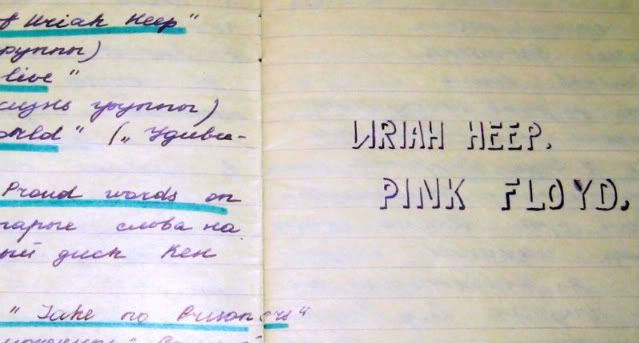 of Uriah Heep"
группы)
live"
жизнь группы)
world" („Удиви-
Proud words on
старые слова на
ный диск Кен
"Take no Prisoners"
URIAH HEEP.
PINK FLOYD.